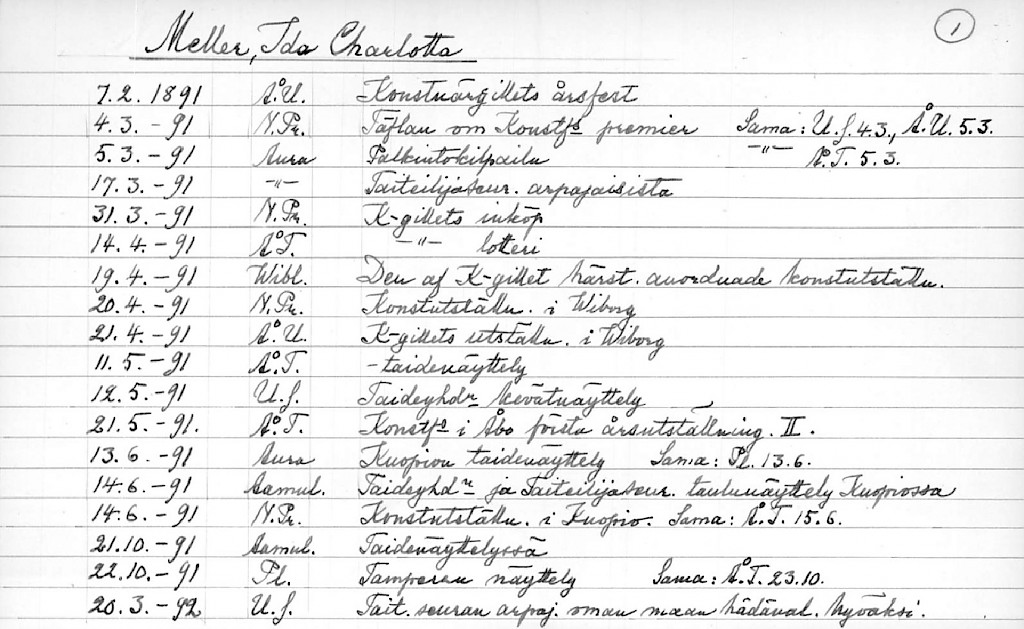 Meller, Ida Charlotta 1
7.2. 1891 Å.U. Konstnärgillets årsfest
4.3. -91 N.Pr. Täflan om Konstfs premier Sama: U.S. 4.3., Å.U. 5.3.
5.3. -91 Aura Palkintokilpailu -"- Å.T. 5.3.
17.3. -91 -"- Taiteilijaseur. arpajaisista
31.3. -91 N.Pr. K-gillets inköp
14.4. -91 Å.T. -"- lotteri
19.4. -91 Wibl. Den af K-gillet härst. anordnade konstutställn.
20.4. -91 N.Pr. Konstutställn. i Wiborg
21.4. -91 Å.U. K-gillets utställn. i Wiborg
11.5. -91 Å.T. -taidenäyttely
12.5. -91 U.S. Taideyhdn kevätnäyttely
21.5. -91. Å.T. Konstfs i Åbo första årsutställning. II.
13.6. -91 Aura Kuopion taidenäyttely Sama: Pl. 13.6.
14.6. -91 Aamul. Taideyhdn ja Taiteilijaseur. taulunäyttely Kuopiossa
14.6. -91 N.Pr. Konstutställn. i Kuopio. Sama: Å.T. 15.6.
21.10. -91 Aamul. Taidenäyttelyssä
22.10. -91 Pl. Tampereen näyttely Sama: Å.T. 23.10.
20.3. -92 U.S. Tait. seuran arpaj. oman maan hädänal. hyväksi.